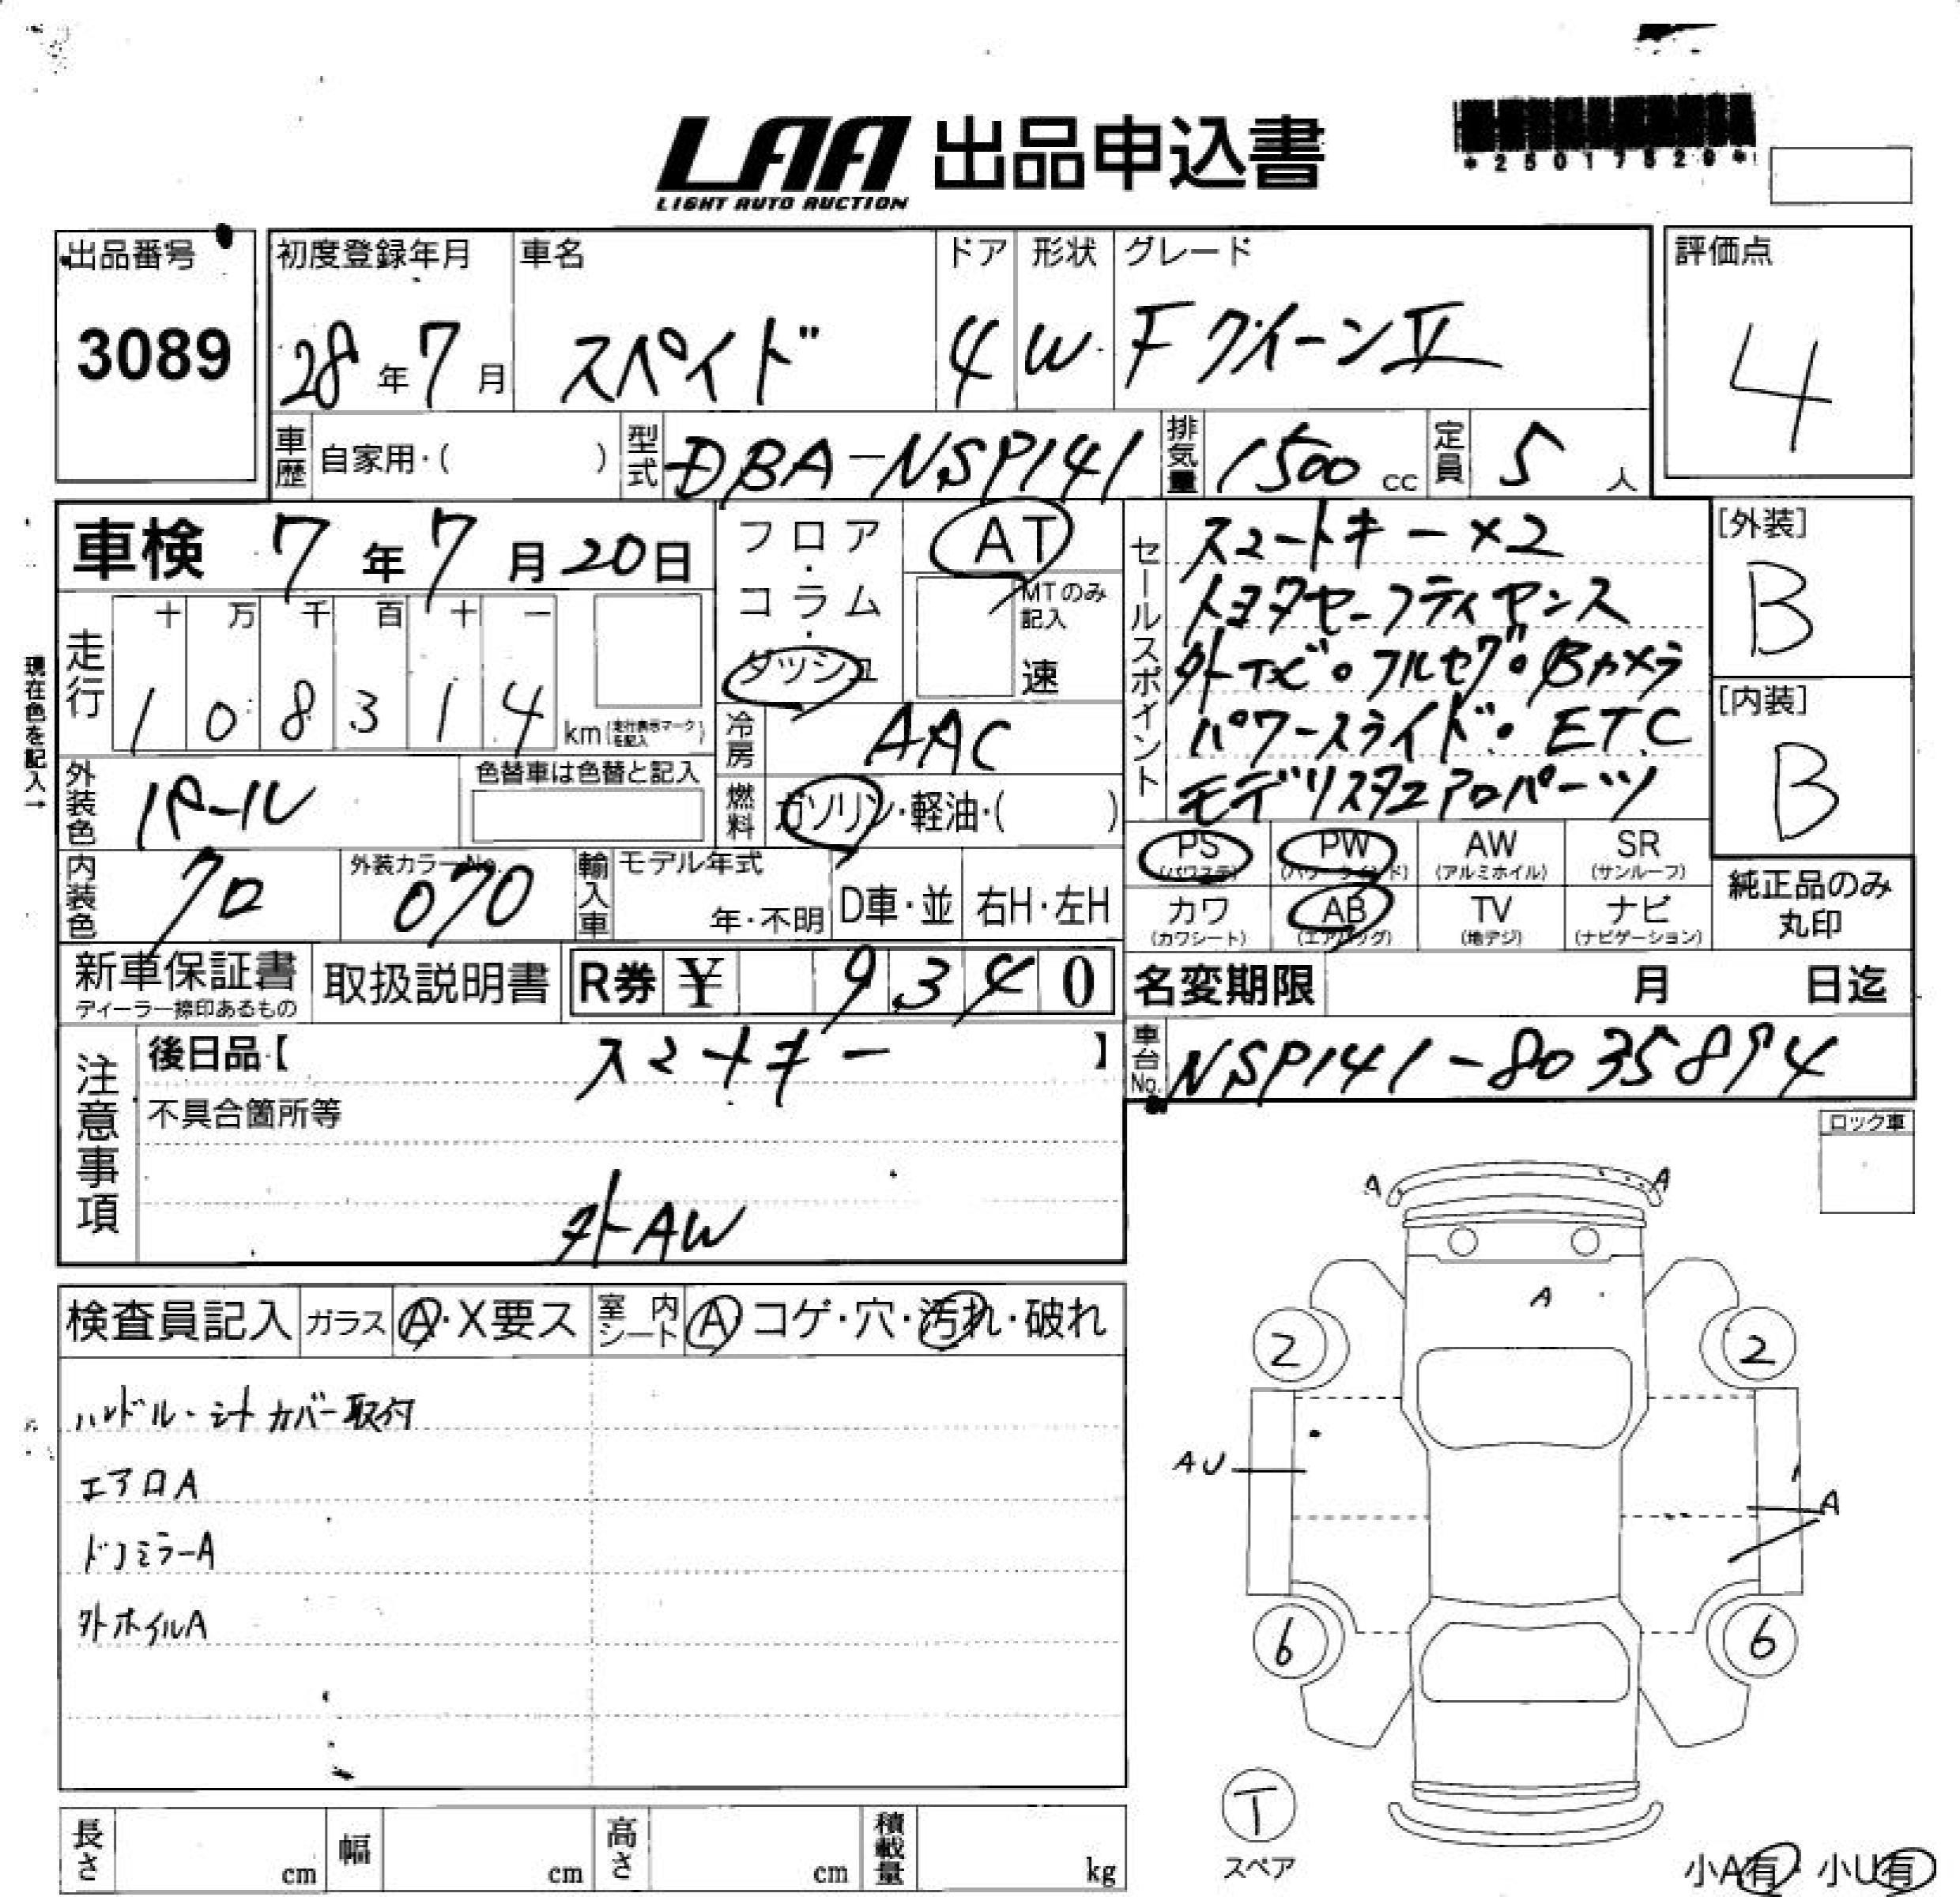 LAA 出品申込書
LIGHT AUTO AUCTION
出品番号
3089
初度登録年月
28年7月
車名
スペイド
ドア
4
形状
W
グレード
F クイーンⅡ
評価点
4
車歴 自家用・( )
型式 DBA-NSP141
排気量 1500 cc
定員 5 人
車検 7年7月20日
フロア・コラム・ダッシュ
AT
MTのみ記入
速
現在色を記入→
走行
十 万 千 百 十 一
1 0 8 3 1 4 km
(走行表示マークを記入)
冷房 AAC
燃料 ガソリン・軽油・( )
外装色 パール
色替車は色替と記入
内装色 クロ
外装カラーNo. 070
輸入車 モデル年式
年・不明
D車・並
右H・左H
セールスポイント
スマートキー×2
トヨタセーフティセンス
外ナビ・フルセグ・Bカメラ
パワースライド・ETC
モデリスタエアロパーツ
[外装]
B
[内装]
B
PS (パワステ)
PW (パワーウインド)
AW (アルミホイル)
SR (サンルーフ)
カワ (カワシート)
AB (エアバッグ)
TV (地デジ)
ナビ (ナビゲーション)
純正品のみ丸印
新車保証書
ディーラー捺印あるもの
取扱説明書
R券 ¥ 9340
名変期限 月 日迄
車台No. NSP141-8035894
注意事項
後日品【 スマートキー 】
不具合箇所等
外AW
ロック車
検査員記入
ガラス A・X要ス
室内シート A コゲ・穴・汚れ・破れ
ハンドル・シートカバー取付
エアロA
ドアミラーA
外ホイルA
A A
A
2 2
AU
A
6 6
T
スペア
小A有・小U有
長さ cm
幅 cm
高さ cm
積載量 kg